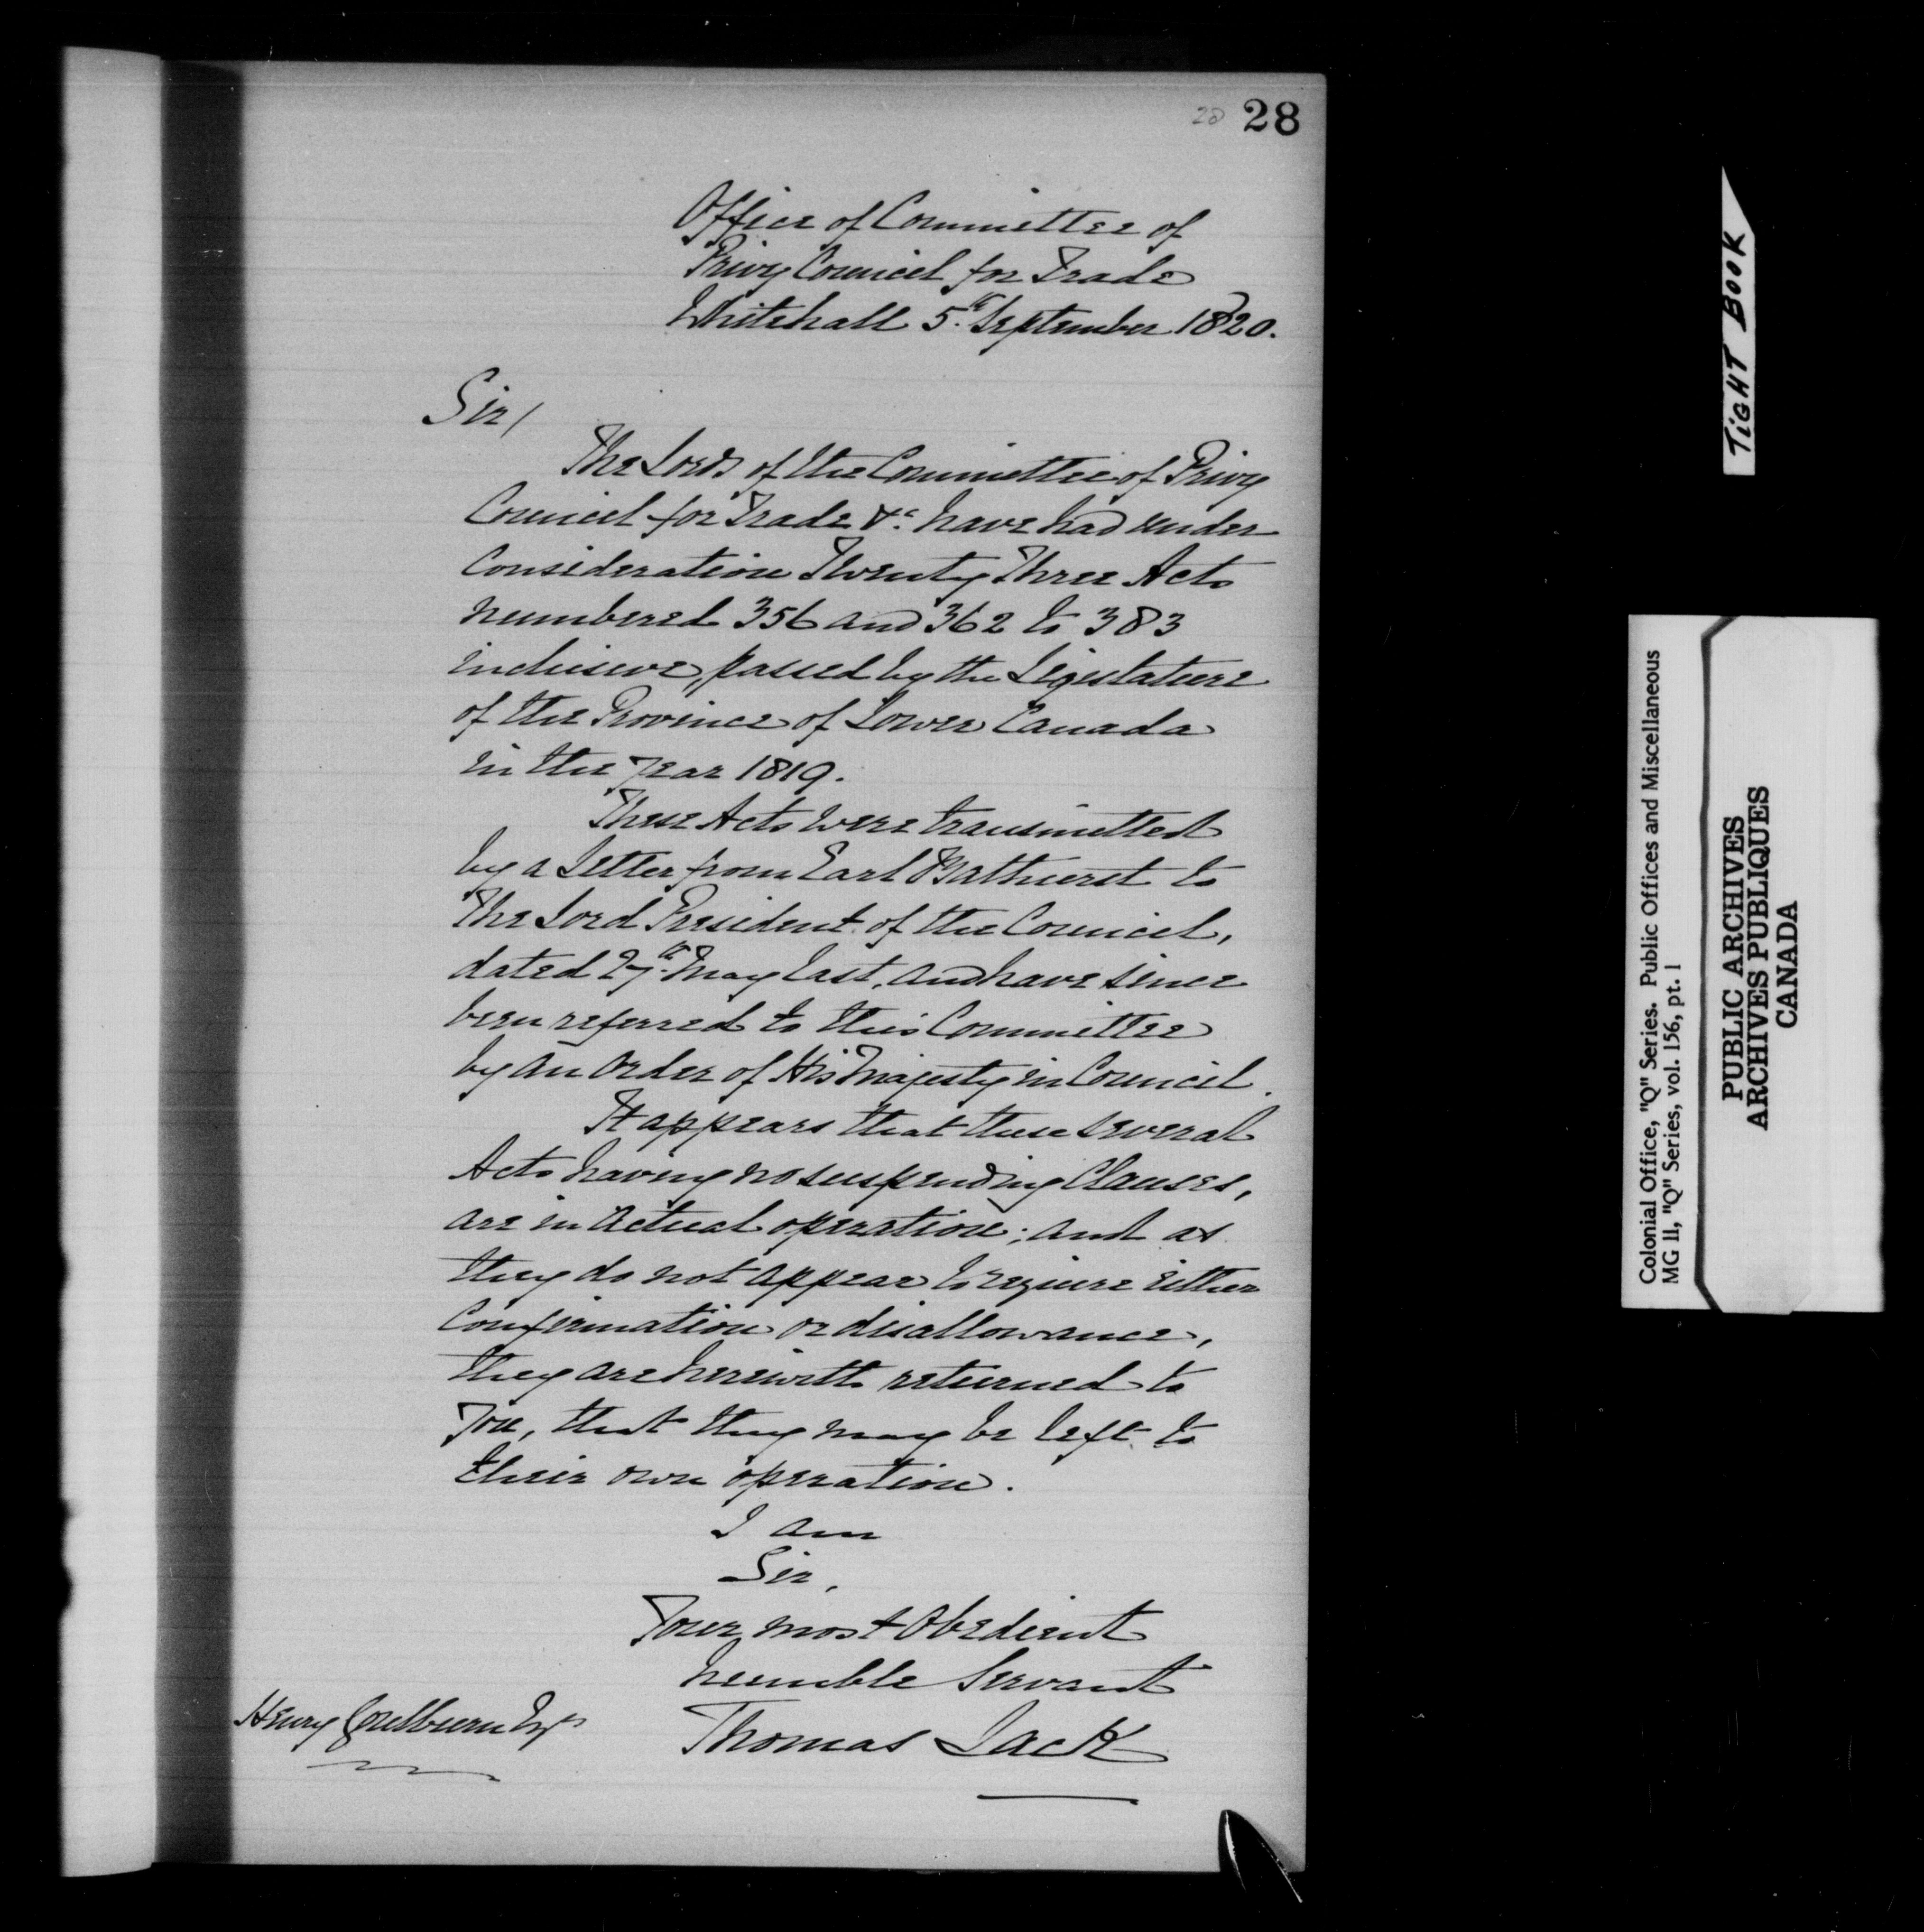 28 28
Office of Committee of
Privy Council for Trade
Whitehall 5th September 1820.
Sir/
The Lords of the Committee of Privy
Council for Trade &c. have had under
Consideration Twenty Three Acts
numbered 356 and 362 to 383
inclusive, passed by the Legislature
of the Province of Lower Canada
in the year 1819.
These Acts were transmitted
by a Letter from Earl Bathurst to
The Lord President of the Council,
dated 27th May last, and have since
been referred to this Committee
by an order of His Majesty in Council.
It appears that these several
Acts having no suspending Clauses,
are in actual operation; and as
they do not appear to require either
Confirmation or disallowance,
they are herewith returned to
You, that they may be left to
their own operation.
I am
Sir,
Your most Obedient
humble Servant
Henry Goulburn Esqr
Thomas Lack
TIGHT BOOK
Colonial Office, "Q" Series. Public Offices and Miscellaneous
MG 11, "Q" Series, vol. 156, pt. 1
PUBLIC ARCHIVES
ARCHIVES PUBLIQUES
CANADA